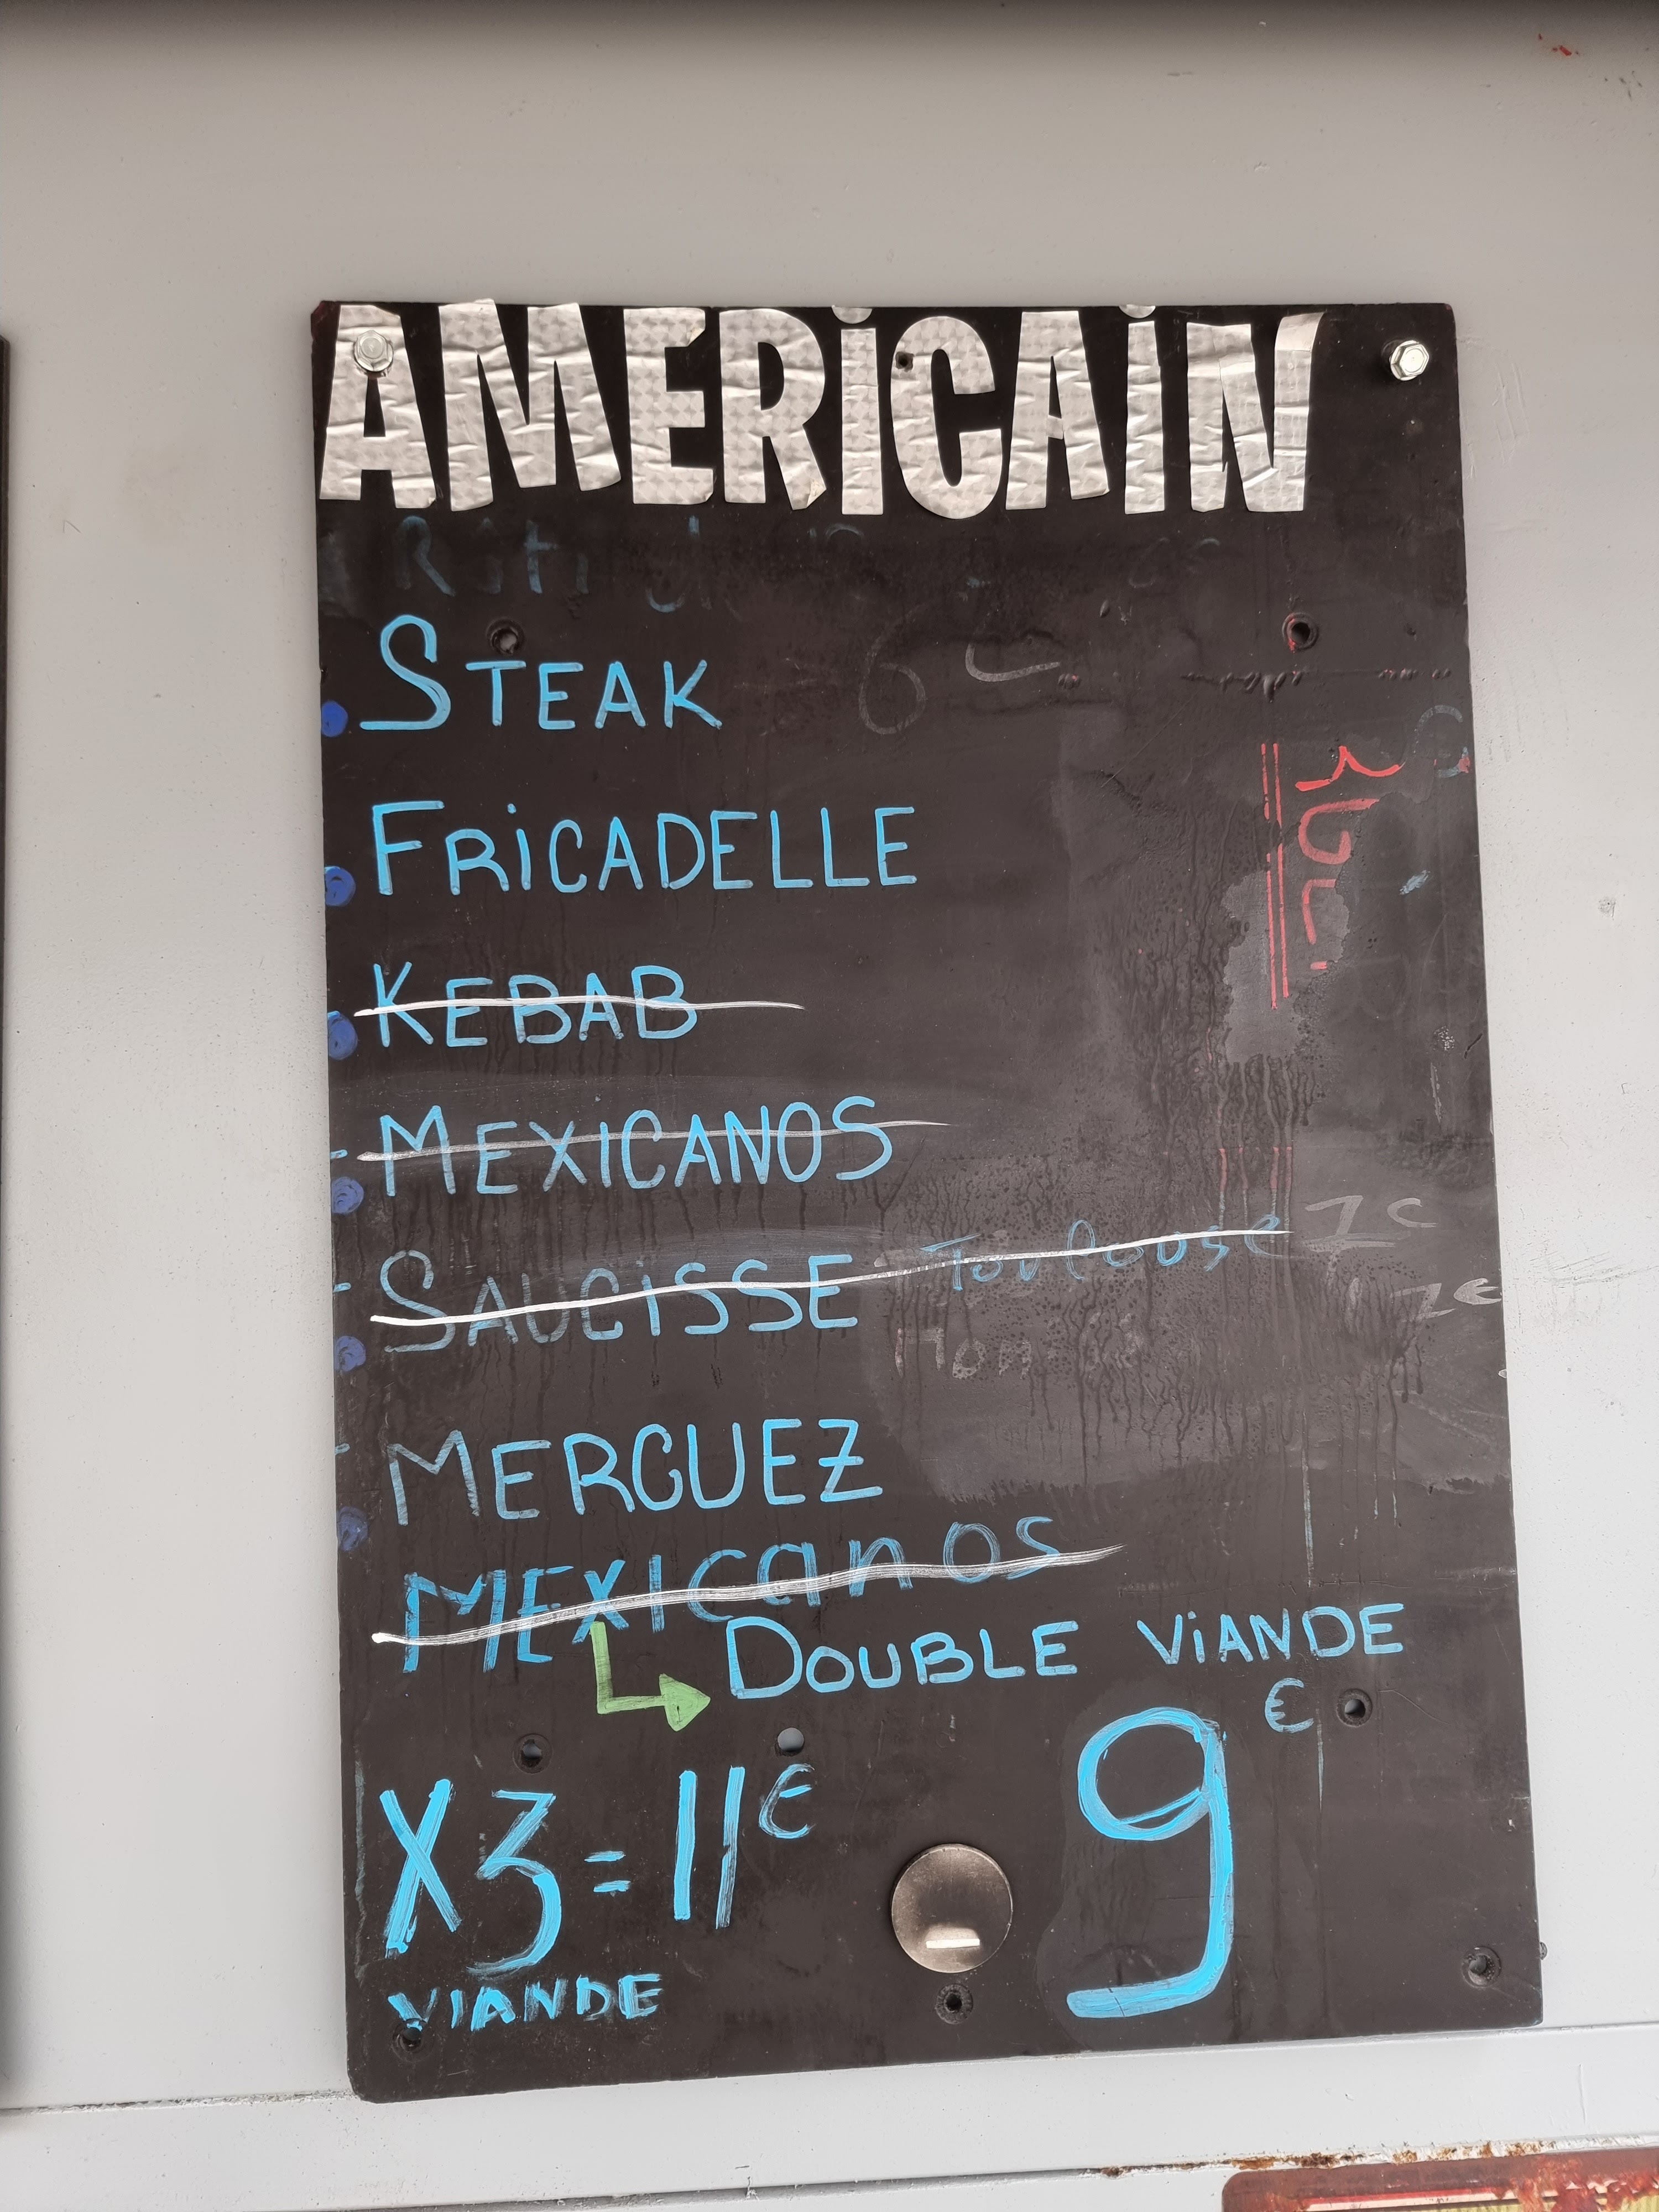 AMERiCAiN
STEAK
FRiCADELLE
KEBAB
MEXICANOS
SAUCiSSE Toulouse 7€
7€
MERGUEZ
MEXICanos
DOUBLE ViANDE
X3 = 11€
9€
VIANDE